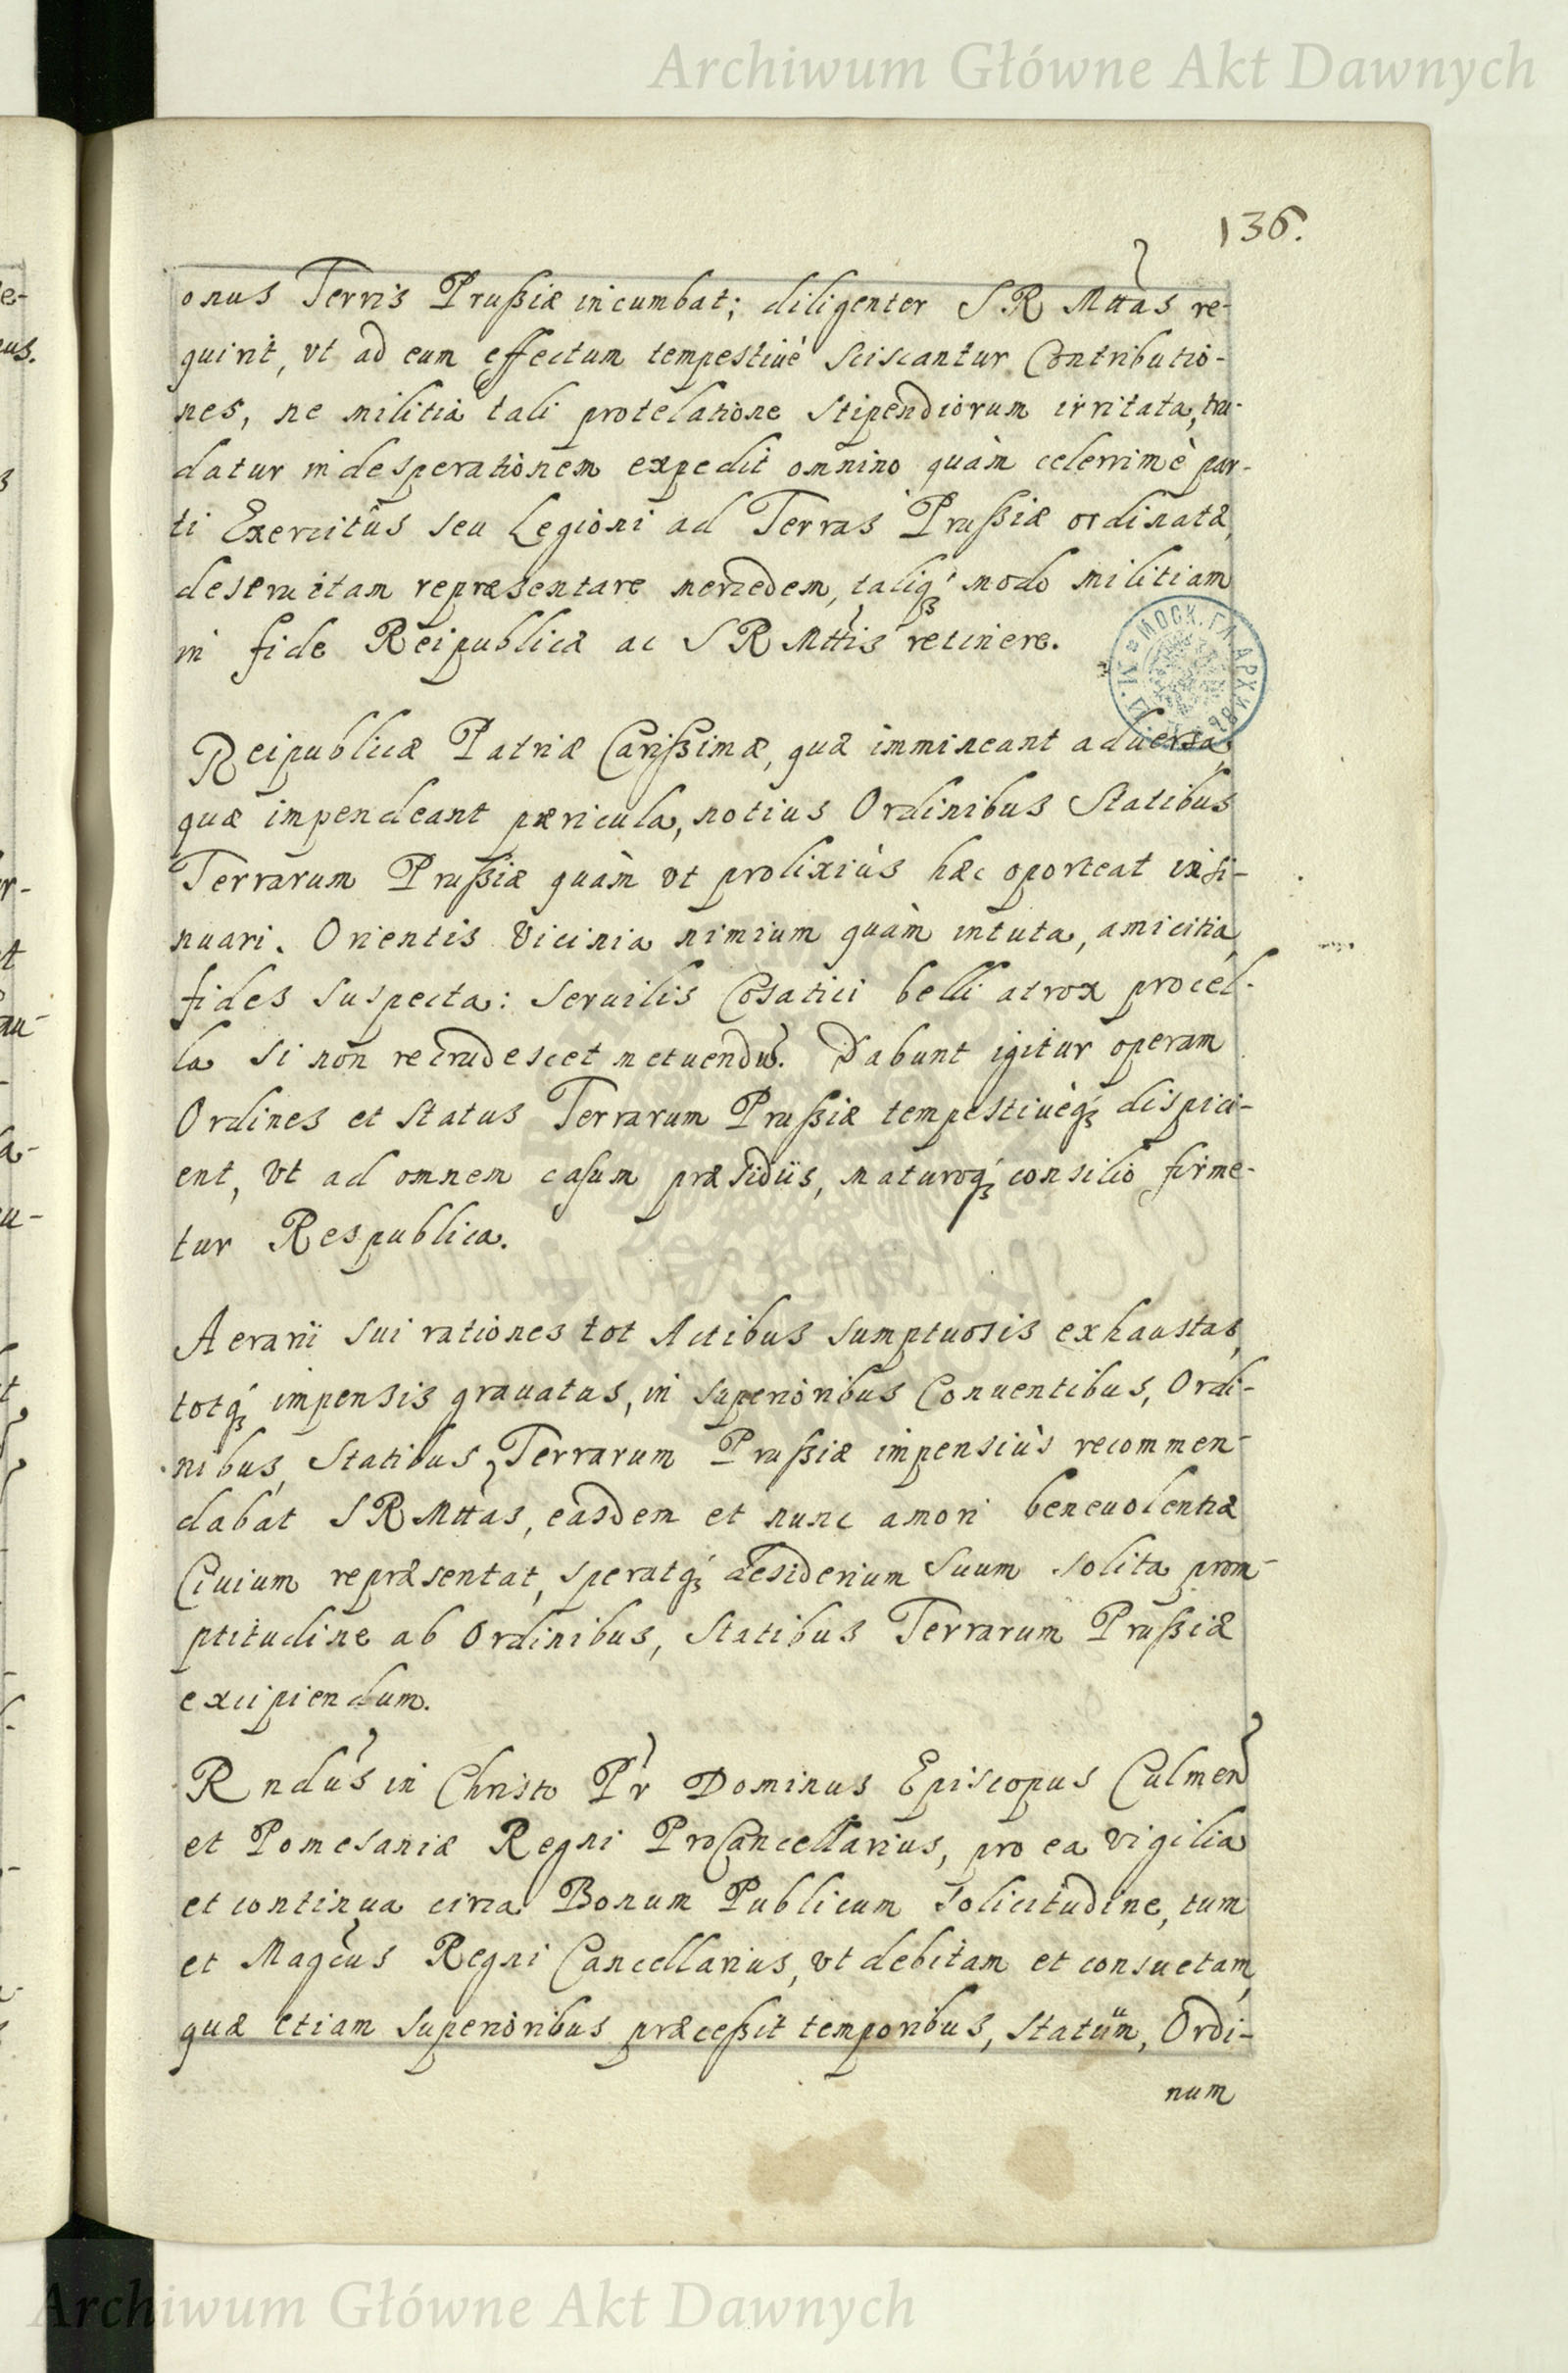 Archiwum Główne Akt Dawnych
136.
onus Terris Prußiæ incumbat; diligenter S R Mttas re-
quirit, vt ad eum effectum tempestiuè sciscantur Contributio-
nes, ne militia tali protelatione stipendiorum irritata, tru-
datur in desperationem expedit omnino quàm celerrimè par-
ti Exercitûs seu Legioni ad Terras Prußiæ ordinatæ,
deseruitam repræsentare mercedem, taliq́ꝫ modo militiam
in fide Reipublicæ ac S R Mttis retinere.
Reipublicæ Patriæ Carißimæ, quæ immineant aduersa,
quæ impendeant pæricula, notius Ordinibus Statibus
Terrarum Prußiæ quàm vt prolixiùs hæc oporteat insi-
nuari. Orientis Vicinia nimium quàm intuta, amicitia,
fides suspecta: seruilis Cosatici belli atrox procel-
la si non recrudescet metuendũ. Dabunt igitur operam
Ordines et Status Terrarum Prußiæ tempestiuèq́ꝫ dispici-
ent, vt ad omnem casum præsidiis, maturoq́ꝫ consilio firme-
tur Respublica.
Aerarii sui rationes tot Actibus sumptuosis exhaustas,
totq́ꝫ impensis grauatas, in superioribus Conuentibus, Ordi-
nibus, Statibus, Terrarum Prußiæ impensiùs recommen-
dabat S R Mttas, easdem et nunc amori beneuolentiæ
Ciuium repræsentat, speratq́ꝫ desiderium suum solita prom-
ptitudine ab Ordinibus, Statibus Terrarum Prußiæ
excipiendum.
Rndus in Christo Pr Dominus Episcopus Culmen
et Pomesaniæ Regni ProCancellarius, pro ea vigilia
et continua circa Bonum Publicum solicitudine, tum
et Magcus Regni Cancellarius, vt debitam et consuetam,
quæ etiam superioribus præceßit temporibus, statuũm, Ordi-
num
Archiwum Główne Akt Dawnych